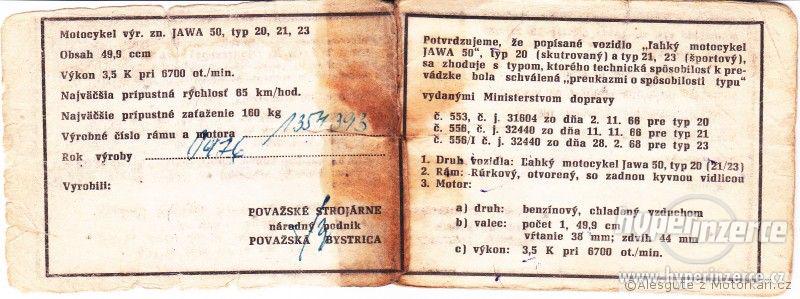 Motocykel výr. zn. JAWA 50, typ 20, 21, 23
Obsah 49,9 ccm
Výkon 3,5 K pri 6700 ot./min.
Najväčšia prípustná rýchlosť 65 km/hod.
Najväčšie prípustné zaťaženie 160 kg
Výrobné číslo rámu a motora 1354393
Rok výroby 1976
Vyrobili:
POVAŽSKÉ STROJÁRNE
národný podnik
POVAŽSKÁ BYSTRICA
Potvrdzujeme, že popísané vozidlo „ľahký motocykel
JAWA 50". Typ 20 (skutrovaný) a typ 21, 23 (športový),
sa zhoduje s typom, ktorého technická spôsobilosť k pre-
vádzke bola schválená „preukazmi o spôsobilosti typu"
vydanými Ministerstvom dopravy
č. 553, č. j. 31604 zo dňa 2. 11. 66 pre typ 20
č. 556, č. j. 32440 zo dňa 11. 11. 66 pre typ 21
č. 556/I č. j. 32440 zo dňa 28. 2. 68 pre typ 23
1. Druh vozidla: Ľahký motocykel Jawa 50, typ 20 (21/23)
2. Rám: Rúrkový, otvorený, so zadnou kyvnou vidlicou
3. Motor:
a) druh: benzínový, chladený vzduchom
b) valec: počet 1, 49,9 cm
vŕtanie 38 mm; zdvih 44 mm
c) výkon: 3,5 K pri 6700 ot./min.
hyperinzerce
www.hyperinzerce.cz
©Alesgute z Motorkari.cz